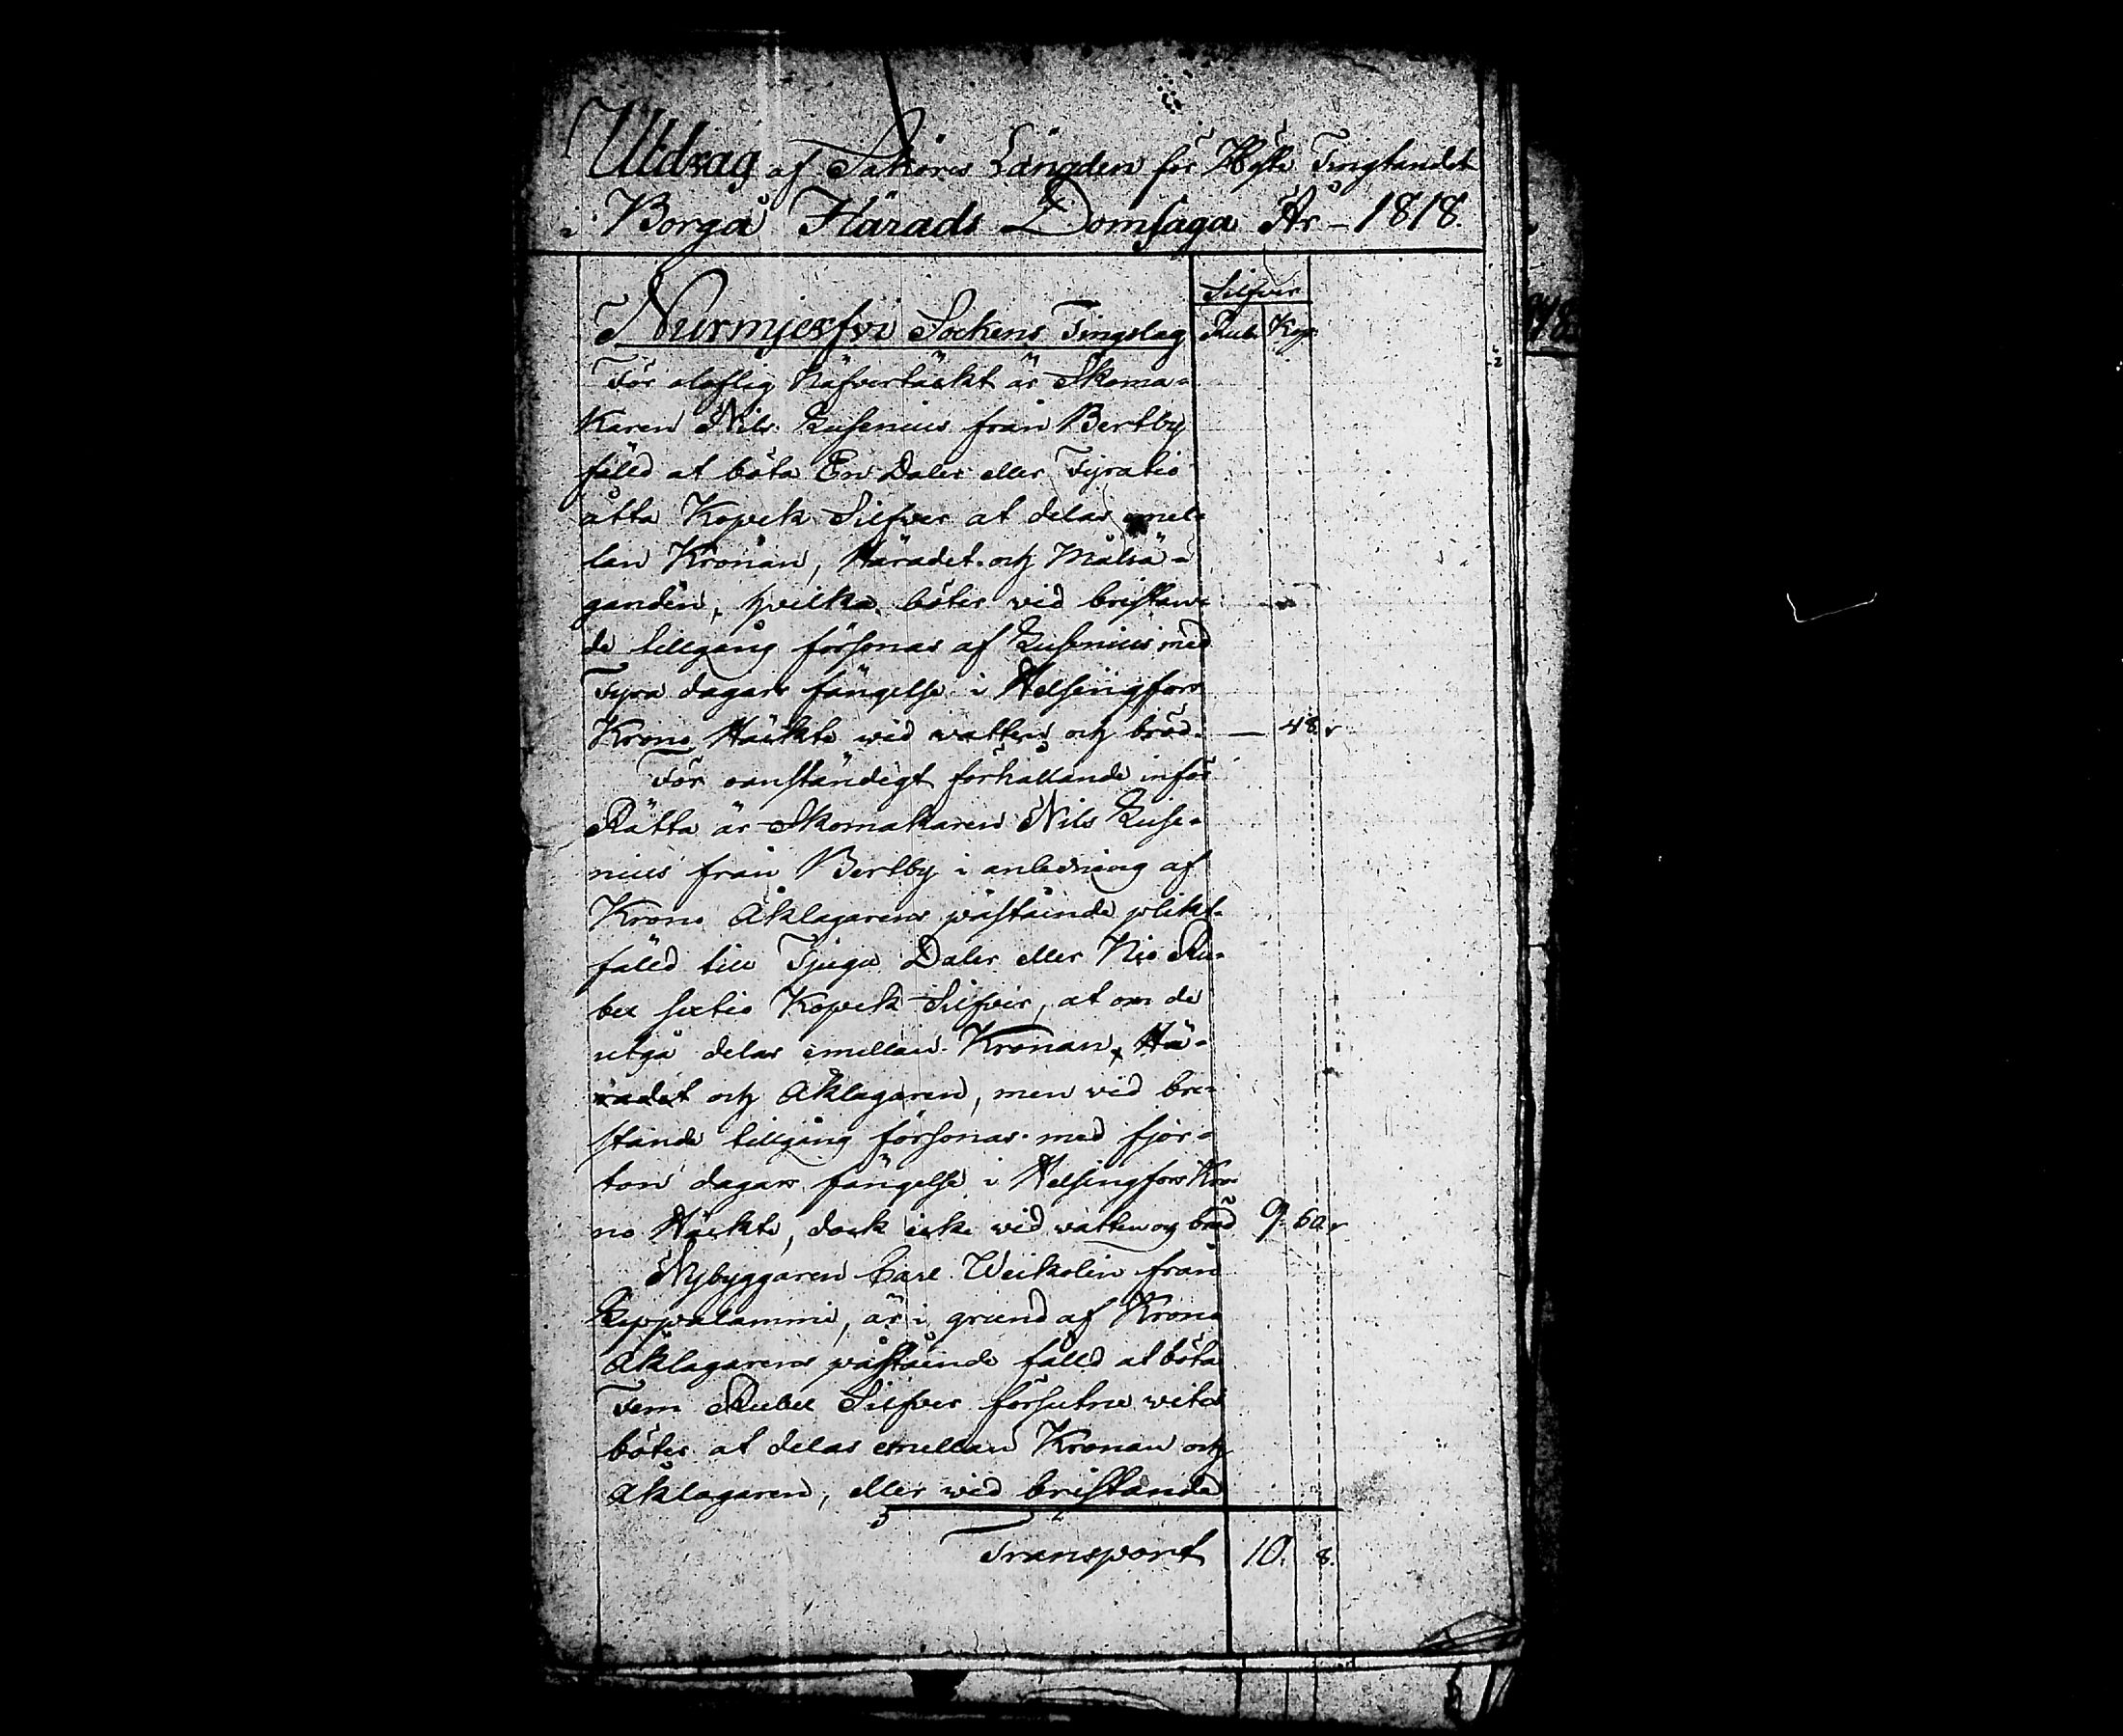 Utdrag af Saköres Längden för Höste Tingtandet
i Borgå Härads Domsaga År - 1818.
Silfver
Nurmijerfvi Sockens Tingslag Rub. Kop.
För oloflig Näfvertäckt är Skoma-
karen Nils Zusenius från Bertby
fälld at böta En Daler eller Fyratio
åtta Kopek Silfver at delas emel-
lan Kronan, Häradet och Målsä-
ganden, hvilka böter vid bristan-
de tillgång försonas af Zusenius med
Fyra dagars fängelse i Helsingfors
Krono Häckte wid watten och bröd. — 48.
För oanständigt förhållande inför
Rätta är Skomakaren Nils Zuse-
nius från Bertby i anledning af
Krono Åklagarens påstående plikt-
fälld till Tjugu Daler eller Nio Ru-
bel sextio Kopek Silfver, at om de
utgå delas emellan Kronan, Hä-
radet och Åklagaren, men vid bri-
stande tillgång försonas med fjor-
ton dagars fängelse i Helsingfors Kro-
no Häckte, dock icke wid watten og bröd 9. 60.
Nybyggaren Carl Weikolin från
Zeppälammi, är i grund af Krono
Åklagarens påstående fälld at böta
Fem Rubel Silfver försutne wites
böter at delas emellan Kronan och
Åklagaren, eller wid bristande
Transport 10. 8.